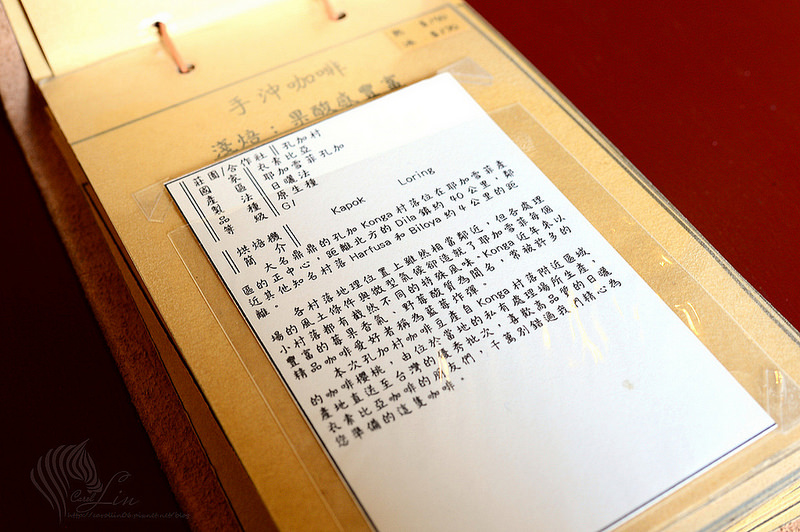 熱 $190
冰 $190
手沖咖啡
淺焙：果酸感豐富
莊園/合作社‖孔加村
國家‖衣索比亞
產區‖耶加雪菲孔加
製法‖日曬法
品種‖原生種
等級‖G1
烘焙機‖ Kapok Loring
簡介‖
大名鼎鼎的孔加Konga村落位在耶加雪菲產
區的正中心，距離北方的Dila鎮約40公里，鄰
近其他知名村落Harfusa和Biloya約4公里的距
離。
各村落地理位置上雖然相當鄰近，但各處理
場的風土條件與微型氣候卻造就了耶加雪菲每個
小村落都有截然不同的特殊風味。Konga近年來以
豐富的莓果香氣、野莓酸質為聞名，常被許多的
精品咖啡愛好者稱為藍莓炸彈
本次孔加村咖啡豆產自Konga村落附近區域
的咖啡櫻桃，由位於當地的私有處理場所生產，
產地直送至台灣的優秀批次，喜歡高品質的日曬
衣索比亞咖啡的朋友們，千萬別錯過我們精心為
您準備的這隻咖啡。
Carol Lin
http://carollin06.pixnet.net/blog